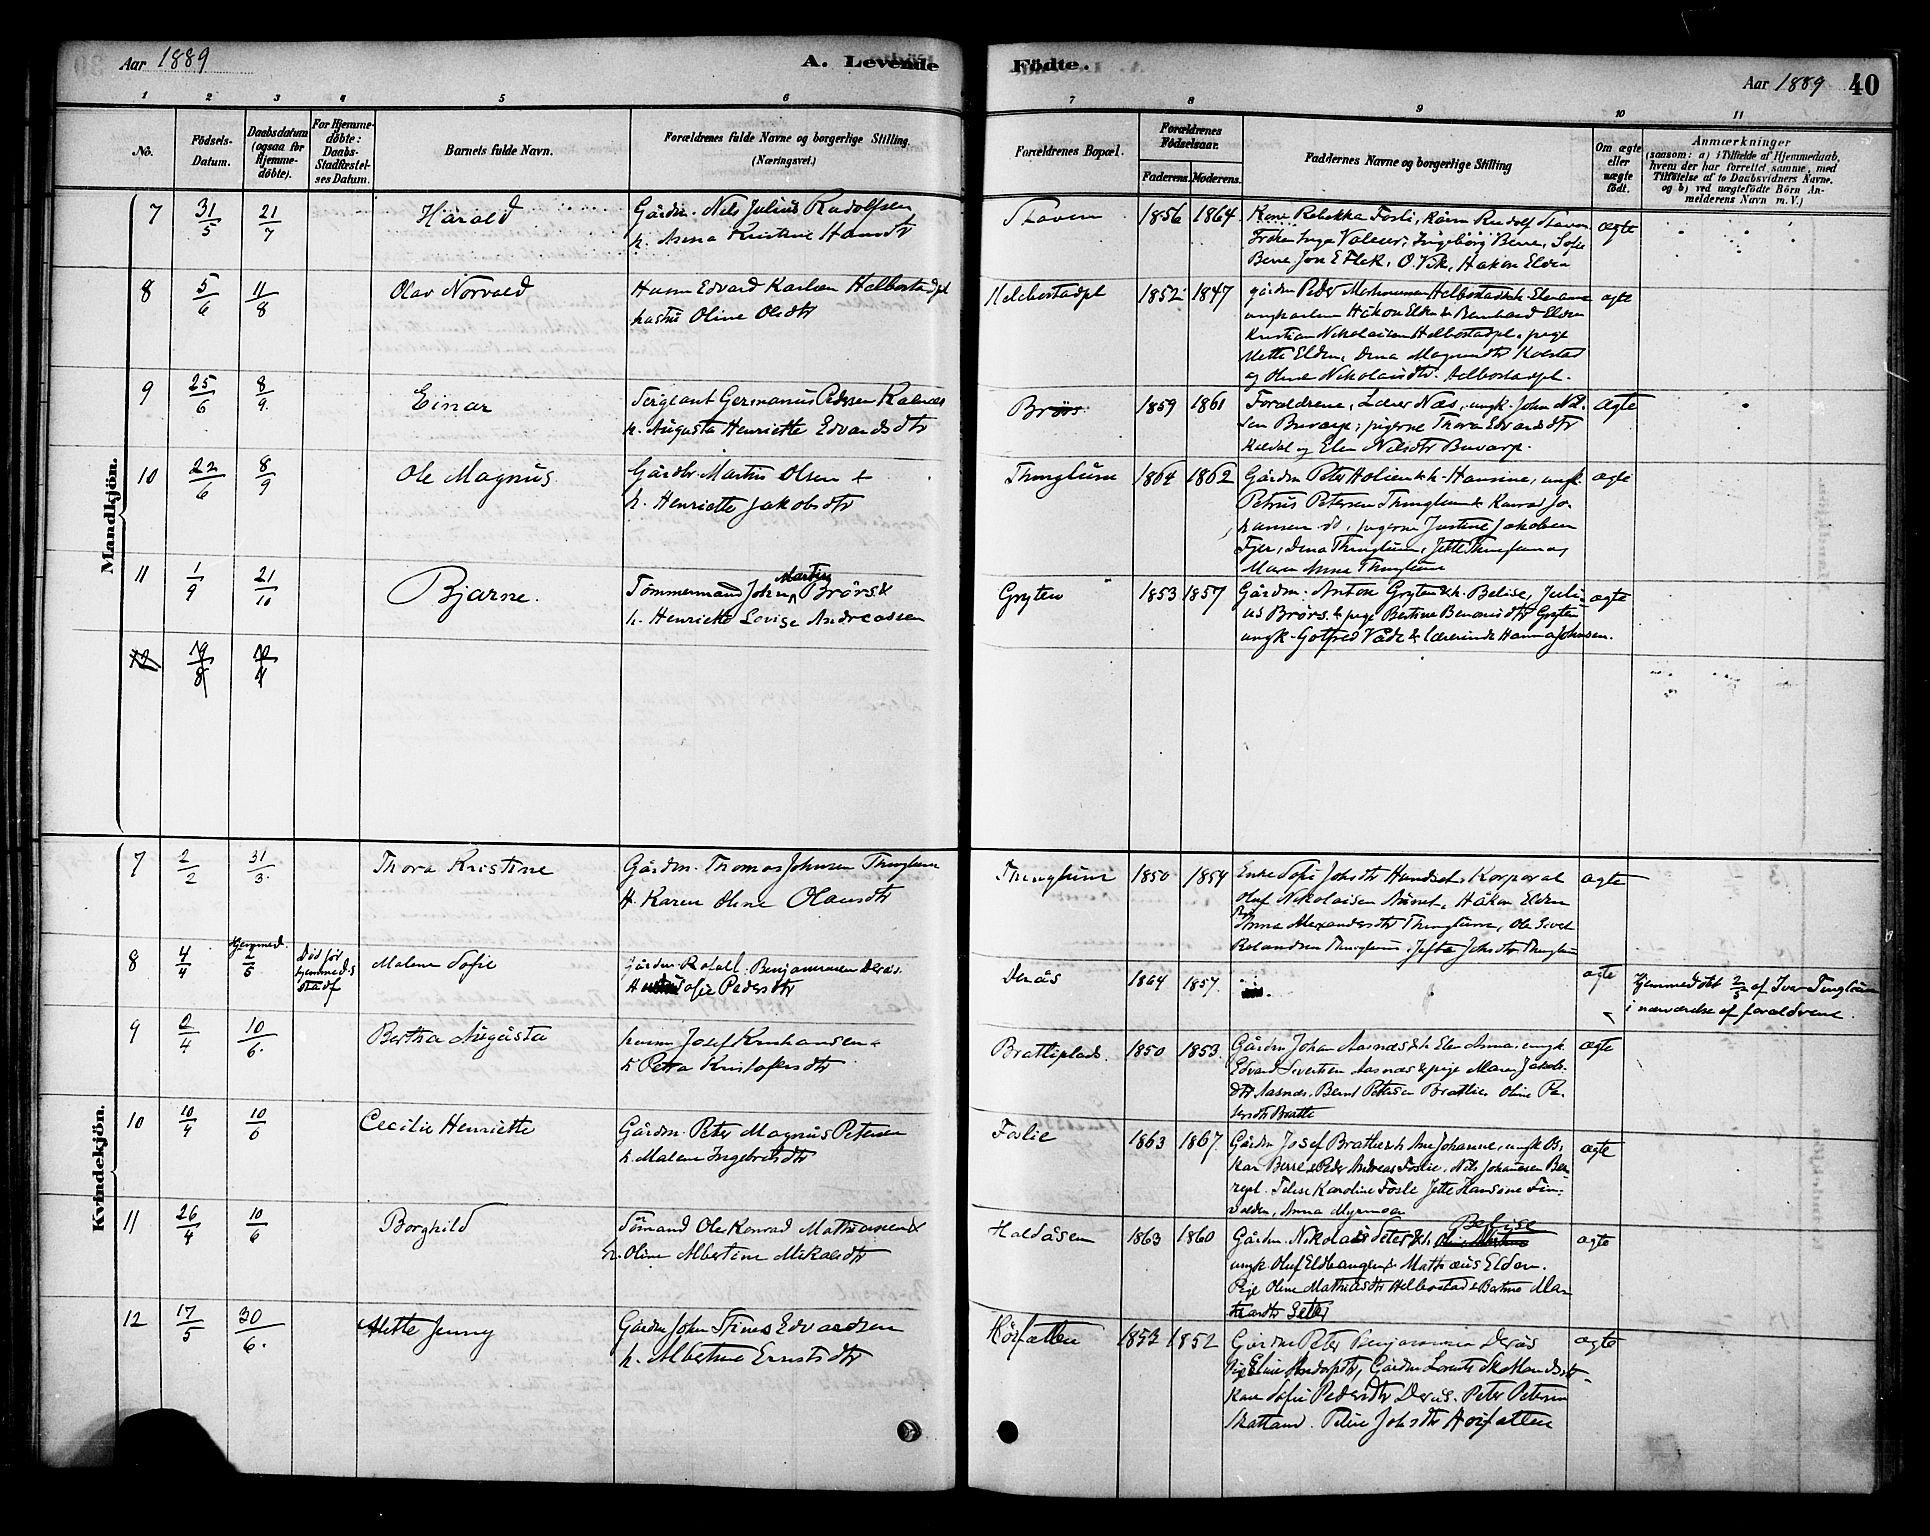 Aar 1889
A. Levende
Födte.
Aar 1889
40
1 2 3 4 5 6 7 8 9 10 11
No.
Födsels-
Datum.
Daabsdatum
(ogsaa for
Hjemme-
döbte).
For Hjemme-
döbte:
Daabs-
Stadfæstel-
ses Datum.
Barnets fulde Navn.
Forældrenes fulde Navne og borgerlige Stilling.
(Næringsvei.)
Forældrenes Bopæl.
Forældrenes
Födselsaar.
Faderens. Moderens.
Faddernes Navne og borgerlige Stilling
Om ægte
eller
uægte
födt.
Anmærkninger
(saasom: a) i Tilfælde af Hjemmedaab,
hvem der har forrettet samme, med
Tilföielse af to Daabsvidners Navne.
og b) ved uægtefödte Börn An-
melderens Navn m. V.)
Mandkjön.
7 31/5 21/7 Harald
Gårdm. Nils Julius Rudolfsen
h. Anna Kristine Hansdt
Staven 1856 1864
Kone Rebekka Fosli, Rudolf Staven
Fröken Inga Valeur, Ingeborg Berre, Sofie
Berre Jon E Flek, O. Vik, Hakon Elden
ægte
8 5/6 11/8 Olav Norvald
Husm Edvard Karlsen Helbostadpl
hustru Oline Olsdtr
Helebostadpl 1852 1847
gårdm Peder Helbostad
ungkarlene Håkon Elden & Bernhard Elden
Kristian Nikolaisen Helbostadpl. pige
Mette Elden, Dina Kolstad
og Oline Nikolaisdtr. Helbostadpl.
ægte
9 25/6 8/9. Einar
Sergeant Germanus Pedersen
h. Augusta Henriette Edvardsdtr
Brörs 1859 1861
Forældrene, Lærer Næs, ungk. John Nil-
sen Buvarp, pigerne Thora Edvardsdtr
Kaldal og Elen Nilsdtr Buvarp.
ægte
10 22/6 8/9 Ole Magnus
Gårdbr. Martin Olsen &
h. Henriette Jakobsdtr
Thinglum 1864 1862
Gårdm Peter Holien & h. Hansine, ungk
Petrus Petersen Thinglum & Konrad Jo-
hansen do, pigerne Justine Jakobsen
Fjer, Dina Thinglum, Jette Thinglum og
Maren Anna Thinglum
ægte
11 1/9 21/10 Bjarne.
Martin
Tömmermand John Brörs &
h. Henriette Lovise Andreassen
Gryten 1853 1857
Gårdm. Anton Gryten & h. Belise, Juli-
us Brörs & pige Bertine Benonisdtr Gryten
ungk. Gotfred Våde & lærerinde Hanna Johnsen.
ægte
12 19/8
Kvindekjön.
7 2/2 31/3. Thora Kristine
Gårdm. Thomas Johnsen Thinglum
H. Karen Oline Olausdtr
Thinglum 1850 1854
Enke Sofi Johsdtr Hundset. Korporal
Oluf Nikolaisen Aunet, Håkon Elden
Anna Alexandersdtr Thinglum, Ole Sivert
Rolandsen Thinglum. Jefta Johsdtr Thinglum
ægte
8 4/4 Hjemmed. 2/5
Död för
hjemmed.s
stadf
Malene Sofie
Gårdm. Benjaminsen Deras.
H Sofie Pedersdtr
Derås 1864 1857.
ægte
Hjemmedöbt 2/5 af Iver Tinglum
i nærværelse af forældrene.
9 2/4 10/6. Bertha Augusta
husm Josef Kristiansen &
h Petra Kristofersdtr
Brattliplads. 1850 1853.
Gårdm Johan Aasnæs & h. Elen Anna, ungk
Edvard Sivertsen Aasnæs & pige Maren Jakobs-
dtr Aasnæs. Bernt Petersen Brattlie. Oline Pe-
tersdtr Bratte
ægte
10 10/4 10/6 Cecilie Henriette
Gårdm. Peter Magnus Petersen
h. Malene Ingebrigtsdtr
Foslie 1863 1867.
Gårdm Josef Bratlie & h Ane Johanne, ungk
Berre & Peder Andreas Foslie. Nils Johansen
Karoline Fosle Jette Hansine
Anna Myrmoen
ægte
11 26/4 10/6 Borghild
Sömand Ole Konrad Mathiassen &
h. Oline Albertine Mikalsdtr
Haldåsen 1863 1860
Belise
Gårdm. Nikolai Seter & h.
ungk Oluf Eldbangen & Mathæus Elden.
Pige Oline Mathiasdtr Helbostad &
Seter
ægte
12 17/5 30/6. Mette Jenny
Gårdm John Stines Edvardsen
h. Albertine Ernstsdtr
Hörfatten 1853 1852
Gårdm Peter Benjaminsen Derås
Pige Eline Andorsdtr, Gårdm Lorents Skatland &
Kone Sofie Pedersdtr Derås. Peter Petersen
Skatland. Petrine Johsdtr Hörfatten
ægte